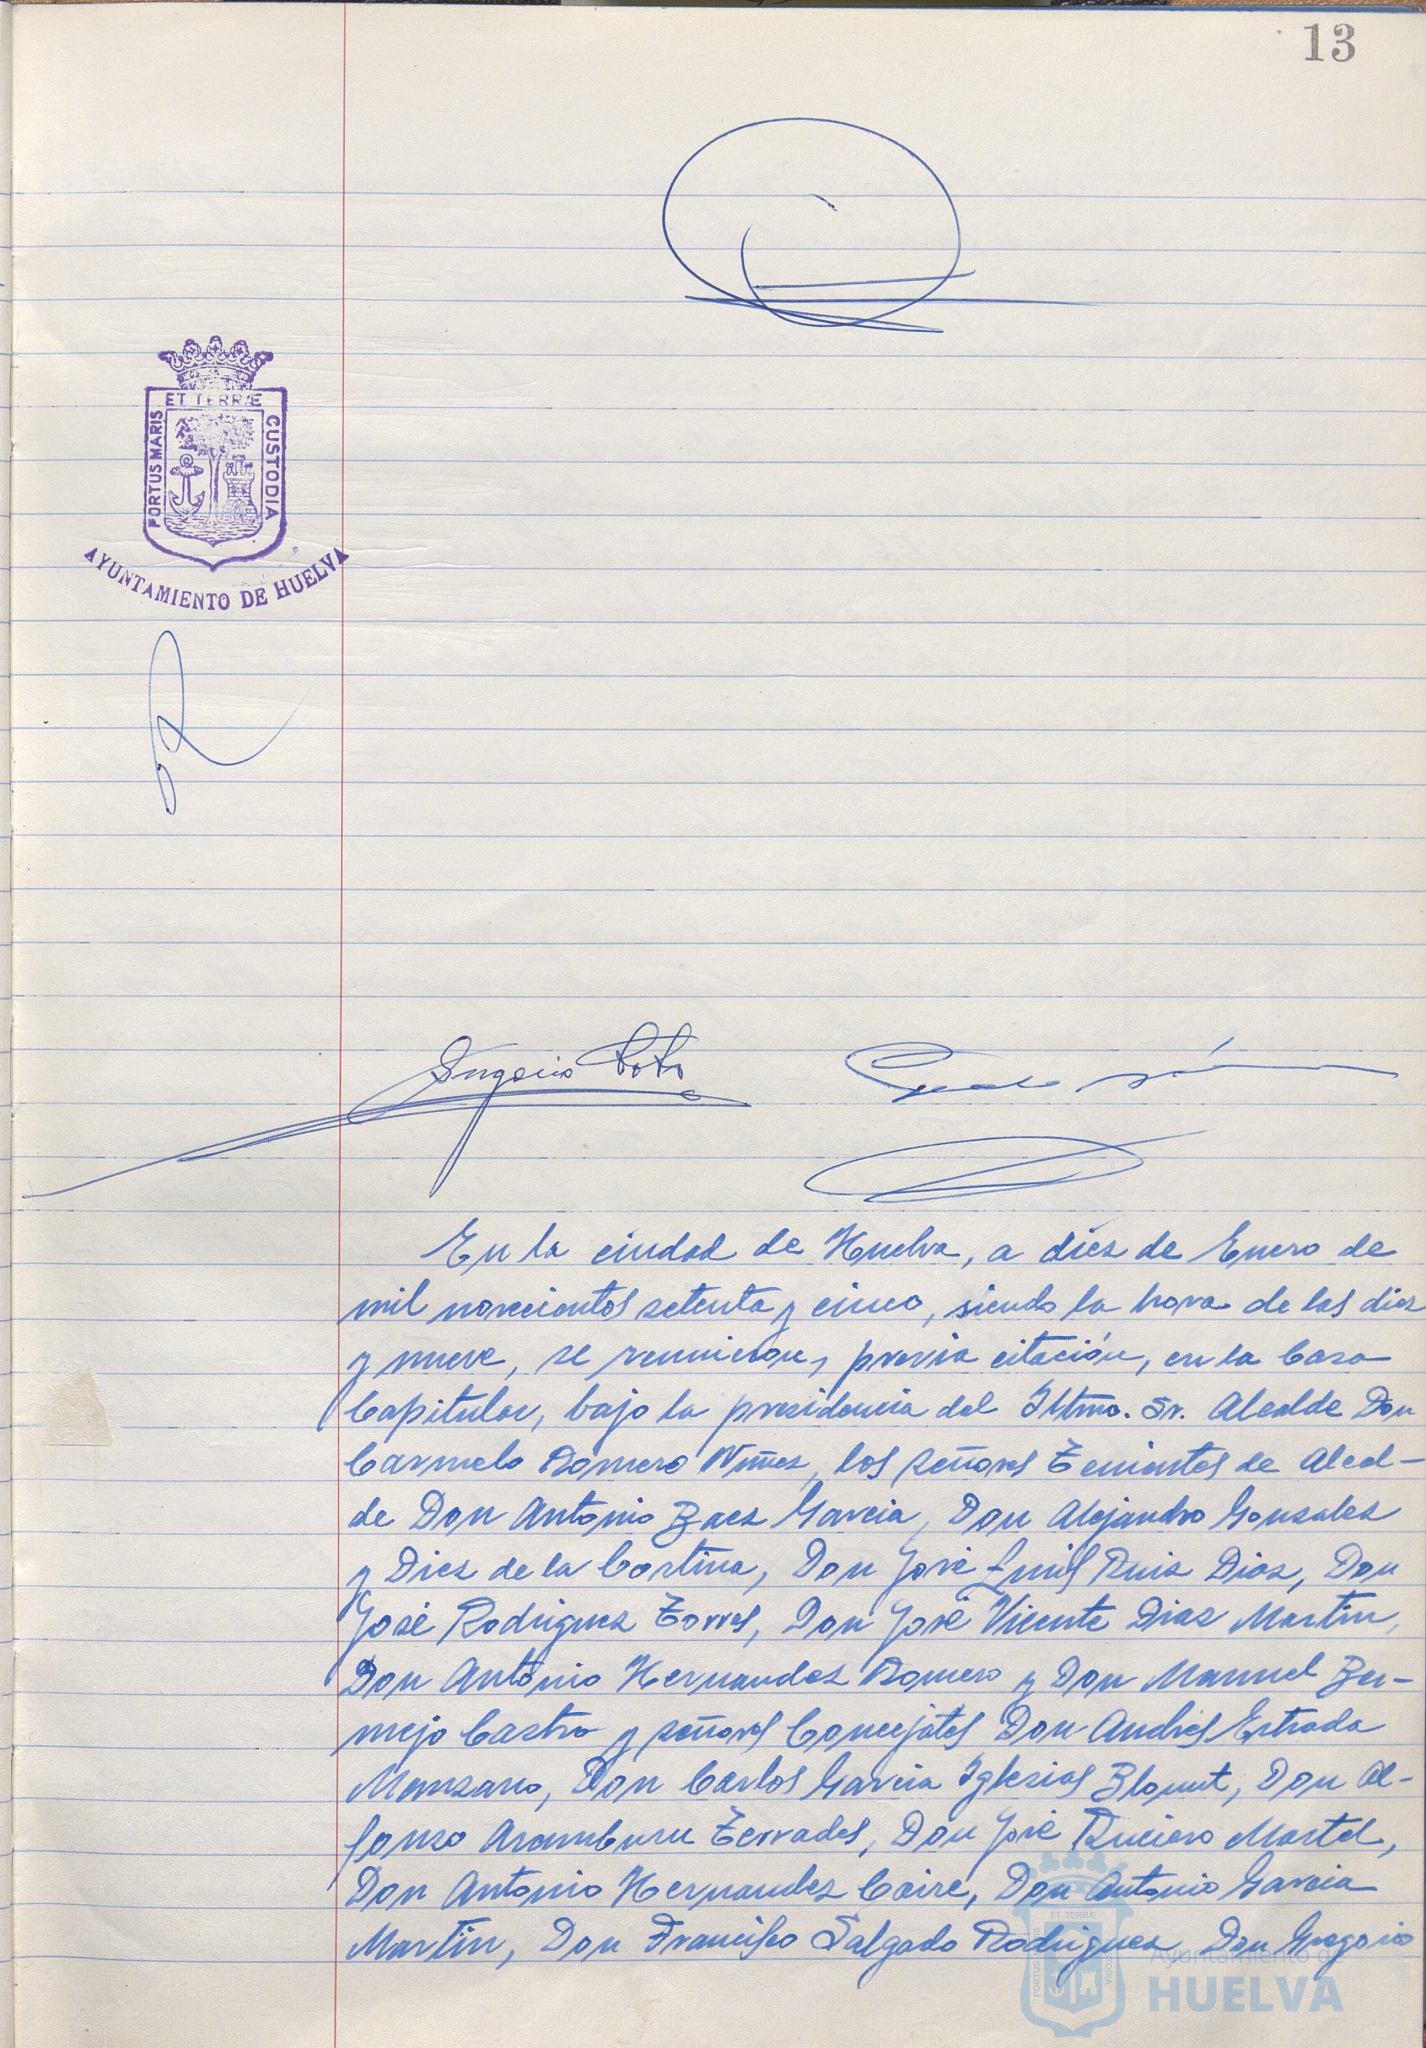 13
ET TERRÆ
PORTUS MARIS
CUSTODIA
AYUNTAMIENTO DE HUELVA
En la ciudad de Huelva, a diez de Enero de
mil novecientos setenta y cinco, siendo la hora de las diez
y nueve, se reunieron, previa citación, en la Casa
Capitular, bajo la presidencia del Iltmo. Sr. Alcalde Don
Carmelo Romero Núñez, los señores Tenientes de Alcal-
de Don Antonio Baez Garcia, Don Alejandro Gonzalez
y Diez de la Cortina, Don José Luis Ruiz Diaz, Don
José Rodriguez Torres, Don José Vicente Diaz Martin,
Don Antonio Hernandez Romero y Don Manuel Ber-
mejo Castro y señores Concejales Don Andres Estrada
Manzano, Don Carlos Garcia Iglesias Blount, Don Al-
fonso Aramburu Terrades, Don José Martel,
Don Antonio Hernandez Caire, Don Antonio Garcia
Martin, Don Francisco Salgado Rodriguez Don Gregorio
Ayuntamiento de
HUELVA